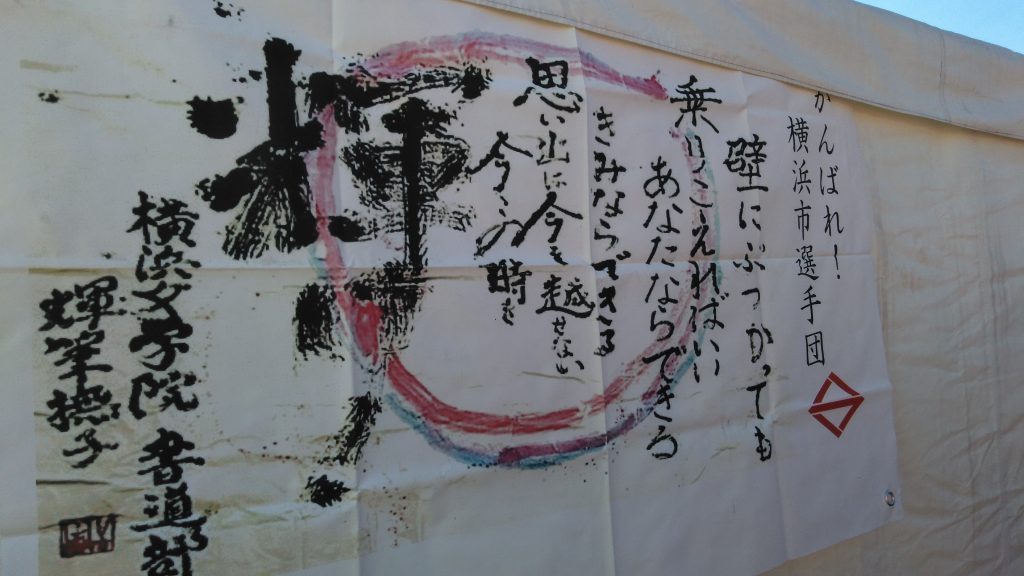 がんばれ!
横浜市選手団
壁にぶつかっても
乗りこえればいい
あなたならできる
きみならできる
思い出は今を越せない
今この時を
輝
横浜女学院 書道部
輝筆撫子